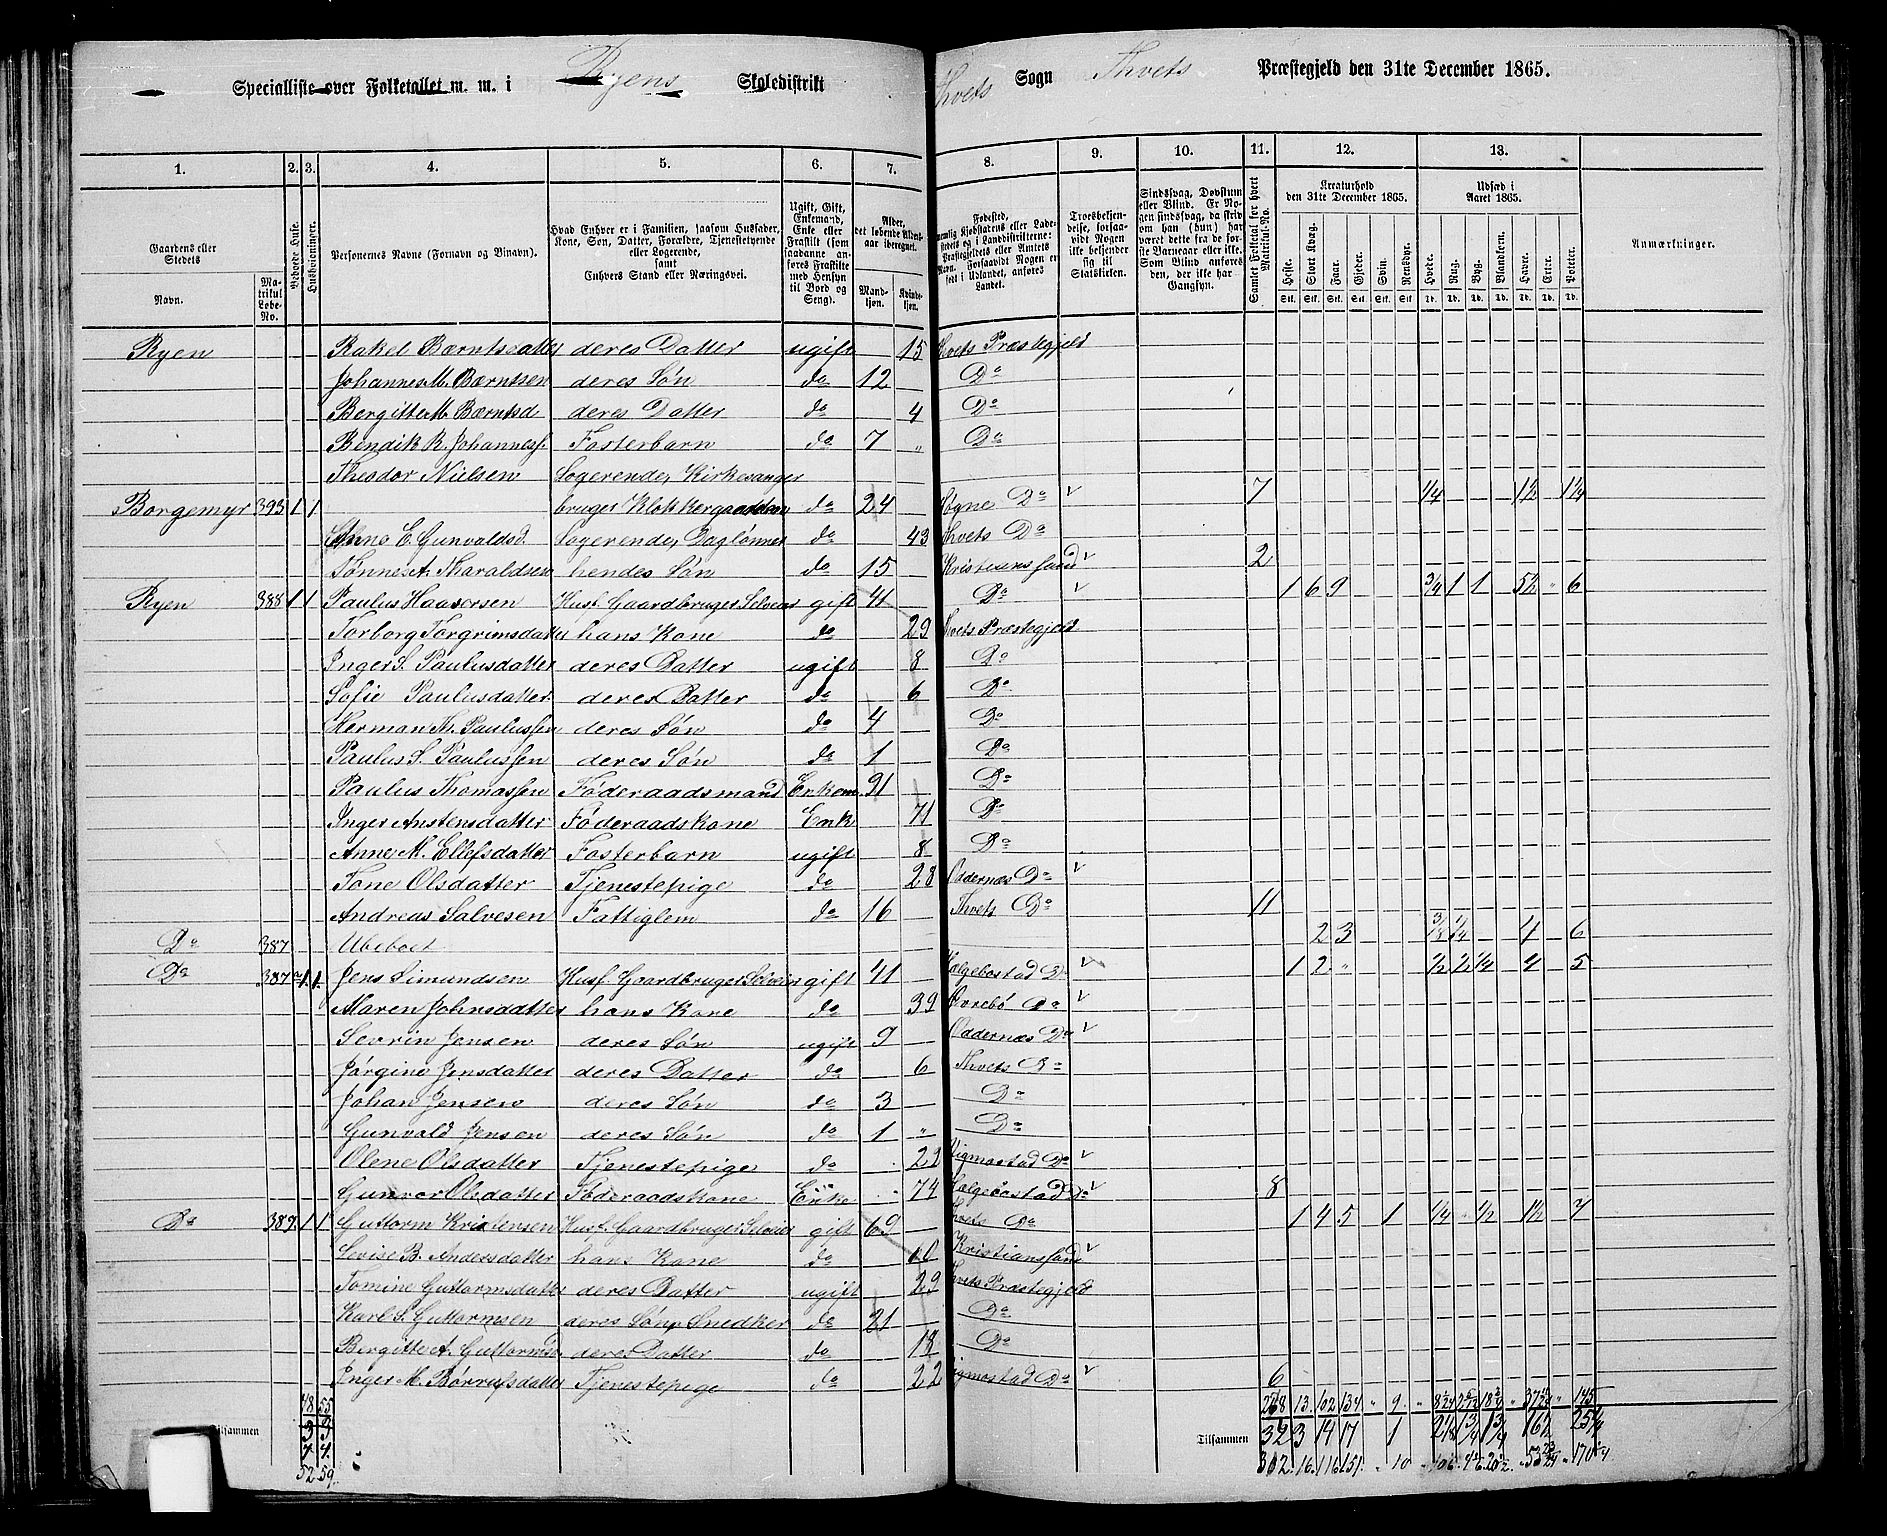 Specialliste over Folketallet m. m. i Ryens Skoledistrikt Thvets Sogn Thvets Præstegjeld den 31te December 1865.
1. 2. 3. 4. 5. 6. 7. 8. 9. 10. 11. 12. 13.
Gaardens eller Stedets Navn. Matrikul Løbe-No. Beboede Huse. Husholdninger. Personernes Navne (Fornavn og Binavn). Hvad Enhver er i Familien, saasom Husfader, Kone, Søn, Datter, Forældre, Tjenestetyende eller Logerende, samt Enhvers Stand eller Næringsvei. Ugift, Gift, Enkemand, Enke eller Fraskilt (som saadanne anføres Fraskilte med Hensyn til Bord og Seng). Alder, det løbende Alders-aar iberegnet. Mandkjøn. Kvindekjøn.
Fødested, Troesbekjendelse, forsaavidt Nogen ikke bekjender sig til Statskirken. Sindssvag, Døvstum eller Blind. Samlet Folketal for hvert Matrikul-No. Kreaturhold den 31te December 1865. Heste. Stort Kvæg. Faar. Gjeder. Svin. Rensdyr. Udsæd i Aaret 1865. Hvede. Rug. Byg. Blandkorn. Havre. Erter. Poteter. Anmærkninger.
Ryen Rakel Bærntsdatter deres Datter ugift 15 Thvets Præstegjeld
Johannes M. Bærntsen deres Søn do 12 Do
Bergitte M. Bærntsd deres Datter do 4 Do
Bendik R. Johanness. Fosterbarn do 7 " Do
Theodor Nielsen Logerende, Kirkesanger
Borgemyr 393 1 1 bruger Klokkergaarden do 24 Søgne Do 7 1/4 1½ 1¼
Anne E. Gunvaldsd. Logerende, Daglønner do 43 Thvets Do
Tønnes A. Tharaldsen hendes Søn do 15 Kristiansand 2
Ryen 388 1 1 Paulus Haaversen Husf. Gaardbruger Selveier gift 41 Do 1 6 9 3/4 1 1 5½ " 6
Torborg Torgrimsdatter hans Kone do 29 Thvets Præstegjeld
Inger S. Paulusdatter deres Datter ugift 8 Do
Sofie Paulusdatter deres Datter do 6 Do
Herman Th. Paulussen deres Søn do 4 Do
Paulus S. Paulussen deres Søn do 1 Do
Paulus Thomassen Føderaadsmand Enkem 91 Do
Inger Anstensdatter Føderaadskone Enk 71 Do
Anne M. Ellefsdatter Fosterbarn ugift 8 Do
Tone Olsdatter Tjenestepige do 28 Oddernæs Do
Andreas Salvesen Fattiglem do 16 Thvets Do 11
Do 387 Ubeboet 2 3 3/8 1/4 4 6
Do 387 a 1 1 Jens Simundsen Husf. Gaardbruger Selveier gift 41 Hælgebostad Do 1 2 " ½ 2 ¼ 4 5
Maren Johnsdatter hans Kone do 39 Øvrebø Do
Sevrin Jensen deres Søn ugift 9 Oddernæs Do
Jørgine Jensdatter deres Datter do 6 Thvets Do
Johan Jensen deres Søn do 3 Do
Gunvald Jensen deres Søn do 1 " Do
Olene Olsdatter Tjenestepige do 22 Vigmostad Do
Gunvor Olsdatter Føderaadskone Enke 74 Hælgebostad Do 8
Do 389 1 1 Guttorm Kristensen Husf. Gaardbruger Selveier gift 69 Thvets Do 1 4 5 1 1/4 ½ 1½ 7
Sevise B. Andersdatter hans Kone do 60 Kristianssand
Tomine Guttormsdatter deres Datter ugift 29 Thvets Præstegjeld
Karl S. Guttormsen deres Søn, Snedker do 21 Do
Bergitte A. Guttormsd. deres Datter do 18 Do
Inger M. Børrufsdatter Tjenestepige do 22 Vigmostad Do 6
48 55 268 13 102 134 " 9 " 145
Tilsammen 3 3 Tilsammen 32 3 14 17 1 16½ 25¼
4 4
52 59 302 16 116 151 " 10